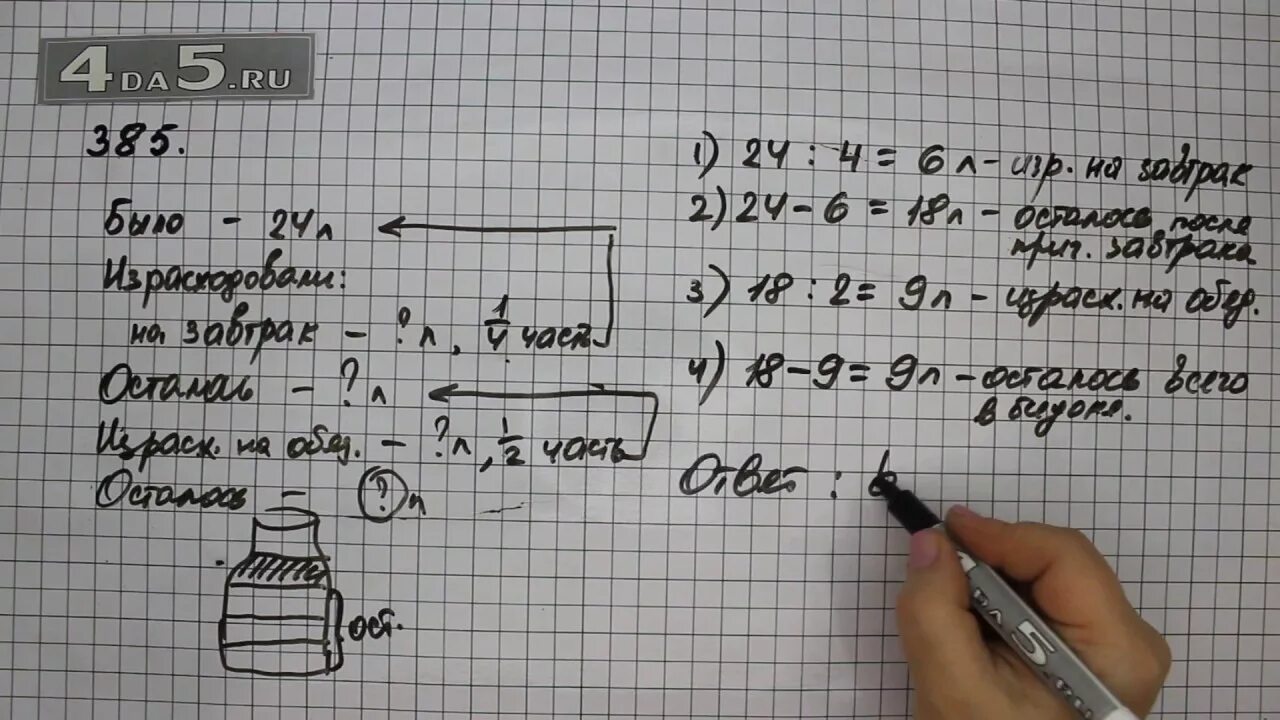 4DA5.RU
385.
Было - 24л
Израсходовали:
на завтрак - ?л, 1/4 часть
Осталось - ?л
Израсх. на обед. - ?л, 1/2 часть
Осталось - ?л
ост.
1) 24 : 4 = 6л - изр. на завтрак
2) 24 - 6 = 18л - осталось после
приг. завтрака
3) 18 : 2 = 9л - израсх. на обед.
4) 18 - 9 = 9л - осталось всего
в бидоне.
Ответ :
DA5.RU